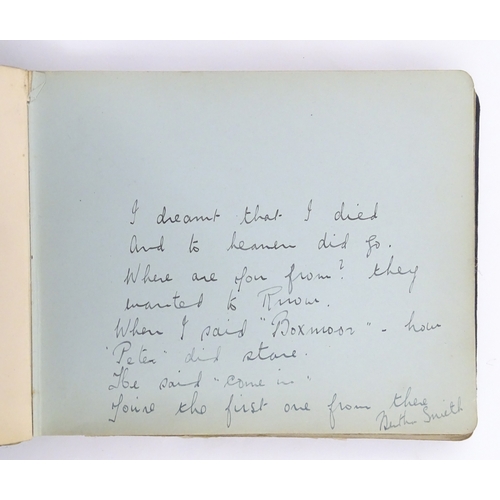 I dreamt that I died
And to heaven did go.
Where are you from? they
wanted to Know.
When I said "Boxmoor" - how
'Peter' did stare.
He said "come in"
You're the first one from there
Smith